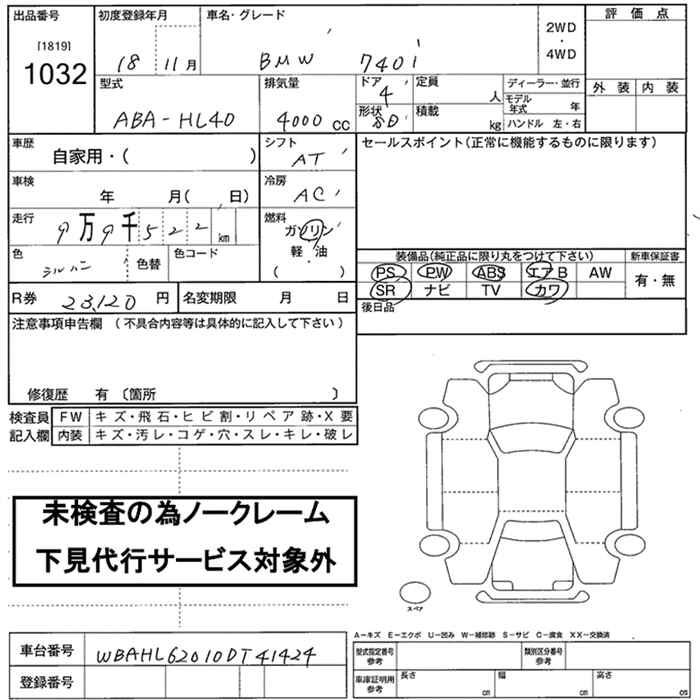 出品番号 初度登録年月 車名・グレード 評価点
[1819] 2WD
・
1032 18 11月 BMW 740i 4WD
型式 排気量 ドア 4 定員 人 ディーラー・並行 外装 内装
モデル年式 年
ABA-HL40 4000cc 形状 SD 積載 kg ハンドル 左・右
車歴 シフト セールスポイント(正常に機能するものに限ります)
自家用・( ) AT
車検 冷房
年 月( 日) AC
走行 燃料
9万9千522km ガソリン
色 シルバー 色替 色コード 軽・油 装備品(純正品に限り丸をつけて下さい) 新車保証書
( ) PS PW ABS エアB AW 有・無
R券 23,120円 名変期限 月 日 SR ナビ TV カワ
注意事項申告欄(不具合内容等は具体的に記入して下さい) 後日品
修復歴 有〔箇所 〕
検査員 FW キズ・飛石・ヒビ割・リペア跡・X要
記入欄 内装 キズ・汚レ・コゲ・穴・スレ・キレ・破レ
未検査の為ノークレーム
下見代行サービス対象外
スペア
A-キズ E-エクボ U-凹み W-補修跡 S-サビ C-腐食 XX-交換済
車台番号 WBAHL62010DT41424 型式指定番号参考 類別区分番号参考
登録番号 車庫証明用参考 長さ cm 幅 cm 高さ cm